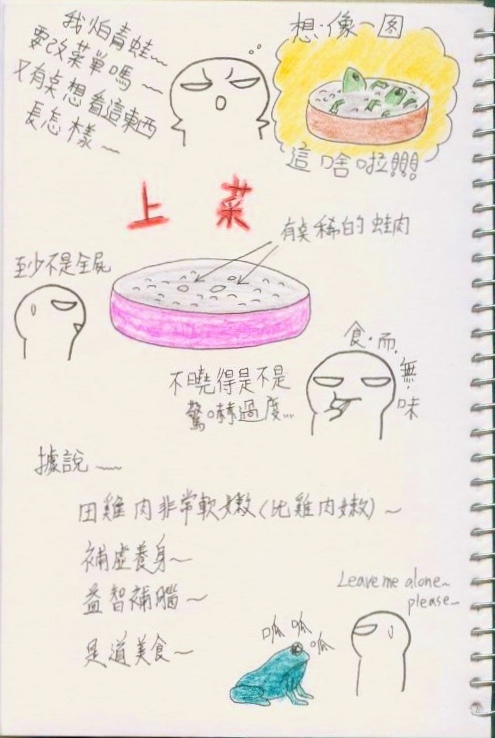 我怕青蛙~
要改菜單嗎~
又有点想看這東西
長怎樣~
想·像·圖
這啥啦!!!
上菜
有点稀的蛙肉
至少不是全屍
不曉得是不是
驚嚇過度...
食·而·無·味
據說~
田雞肉非常軟嫩(比雞肉嫩)~
補虛養身~
益智補腦~
是道美食~
Leave me alone~
please~
呱 呱 呱